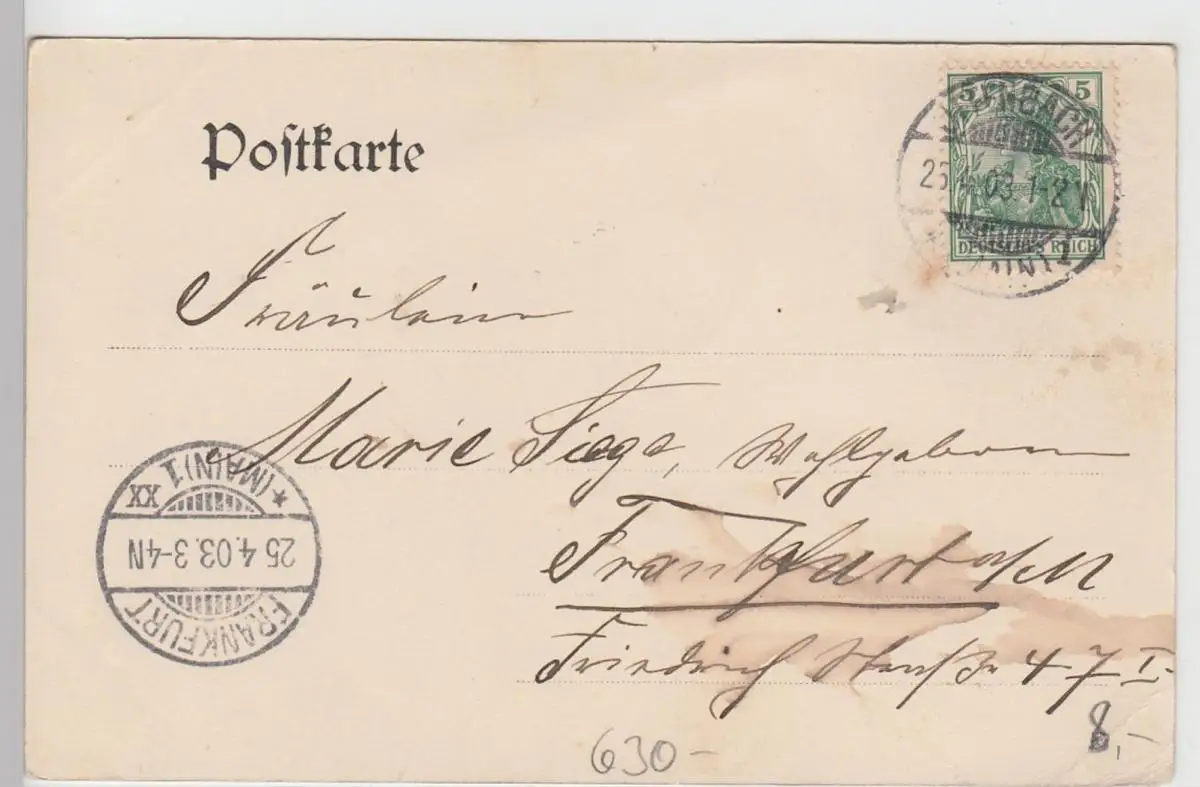 Postkarte
5 5
DEUTSCHES REICH
25.4.03. 1-2 N
(MAIN) 1
Fräulein
Marie Siege, Wohlgeboren
Frankfurt a/M
Friedrich Straße 47 I.
FRANKFURT
25.4.03. 3-4N
* (MAIN) 1
XX
630-
8,-